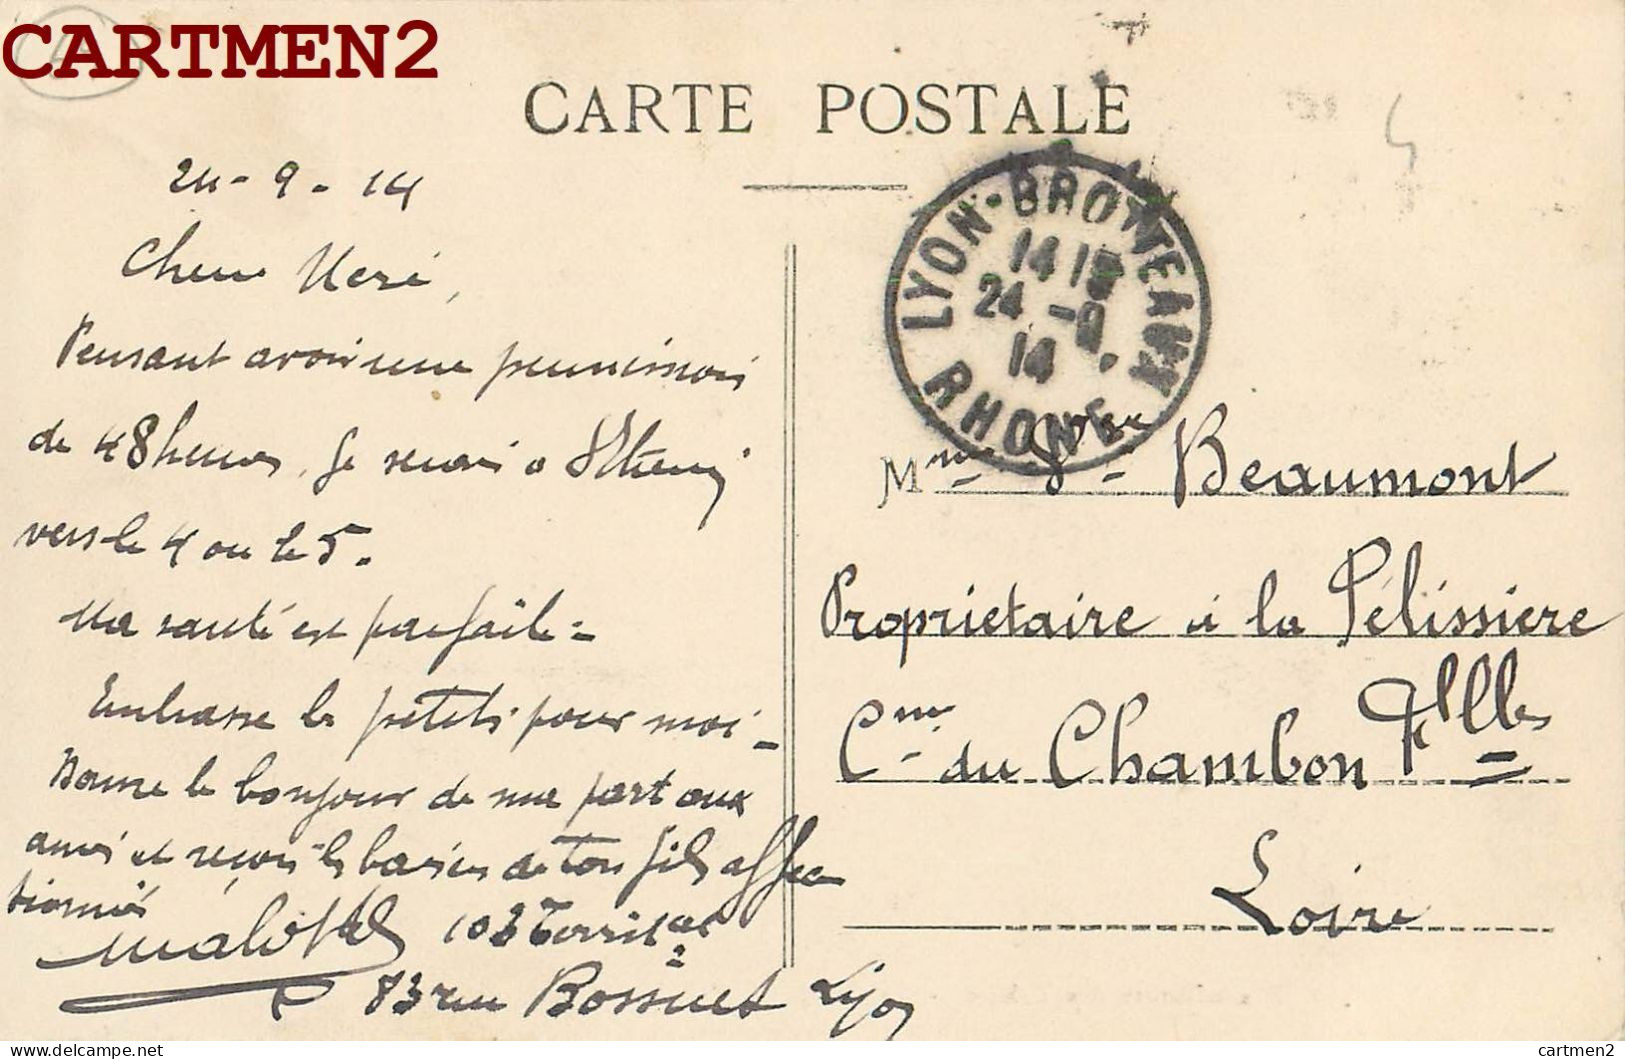 CARTMEN2
CARTE POSTALE
24-9-14
Chere
Pensant avoir une permission
de 48 heures, je serai a St
vers le 4 ou le 5.
Ma santé est parfaite =
Embrasse les petits pour moi -
Donne le bonjour de ma part aux
amis et reçois les baisers de ton fils affec
tionné
103 Territ
83 rue Bossuet Lyon
LYON-BROTTEAUX
14 15
24 -9
14
RHONE
Mme Beaumont
Propriétaire à la Pélissière
Cne du Chambon Flles
Loire
cartmen2